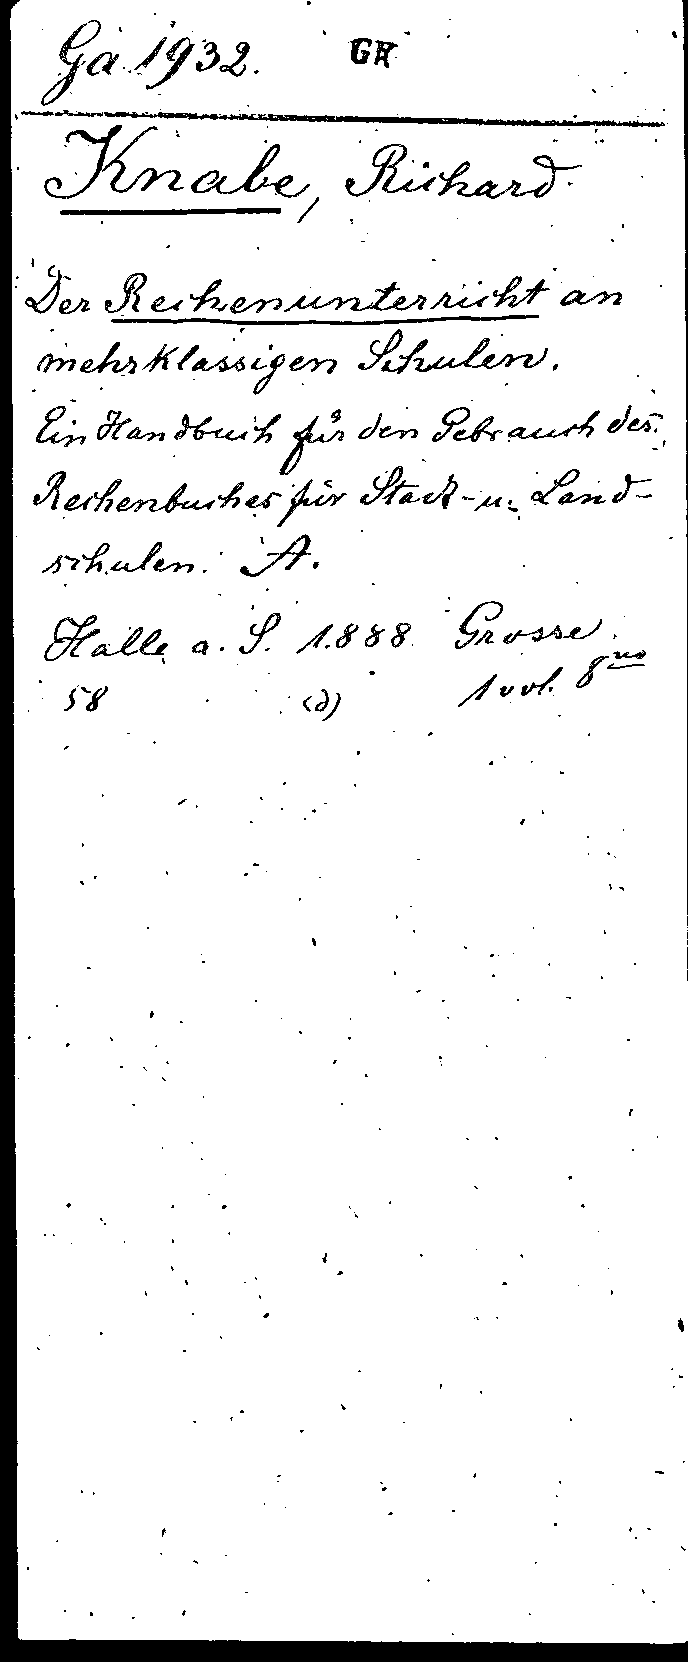 Ga 1932. GA
Knabe, Richard.
Der Rechenunterricht an
mehrklassigen Schulen.
Ein Handbuch für den Gebrauch des
Rechenbuches für Stadt- u. Land-
schulen. A.
Halle a. S. 1888 Grosse
58 (d) 1 vol. 8vo